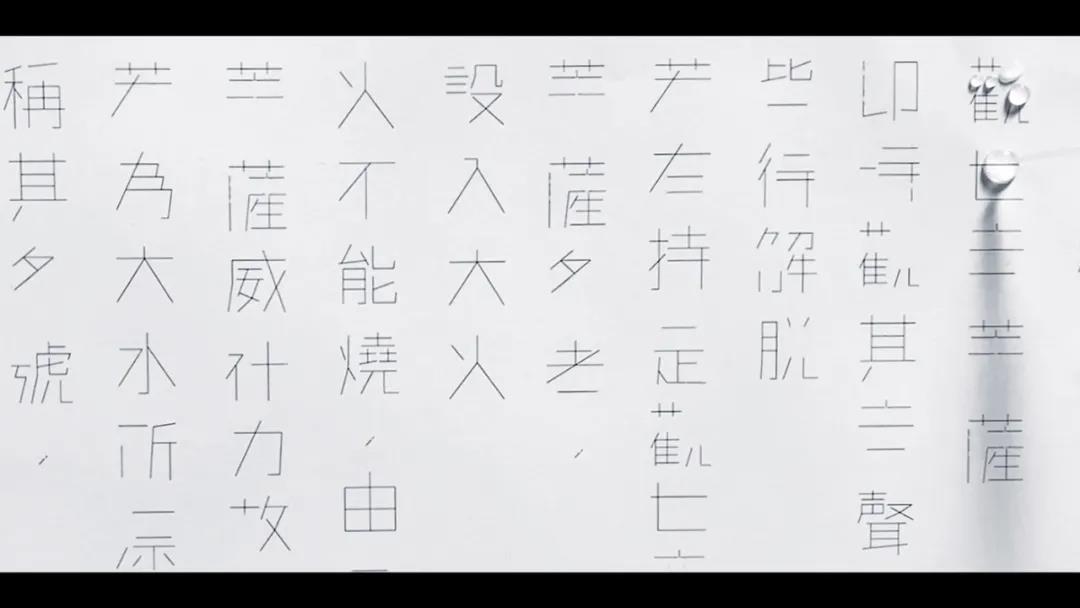 觀世音菩薩
即時觀其音聲
皆得解脫
若有持是觀世
菩薩名者、
設入大火
火不能燒、由
菩薩威神力故
若為大水所漂
稱其名號、